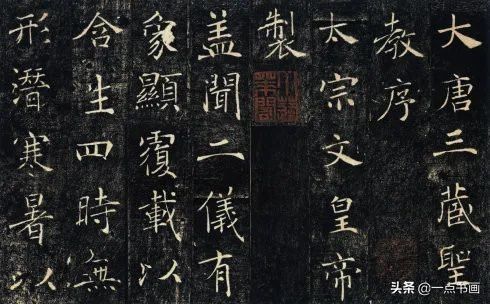 大唐三藏聖
教序
太宗文皇帝
製
盖聞二儀有
象顯覆載以
含生四時無
形潛寒暑以
头条 @一点书画